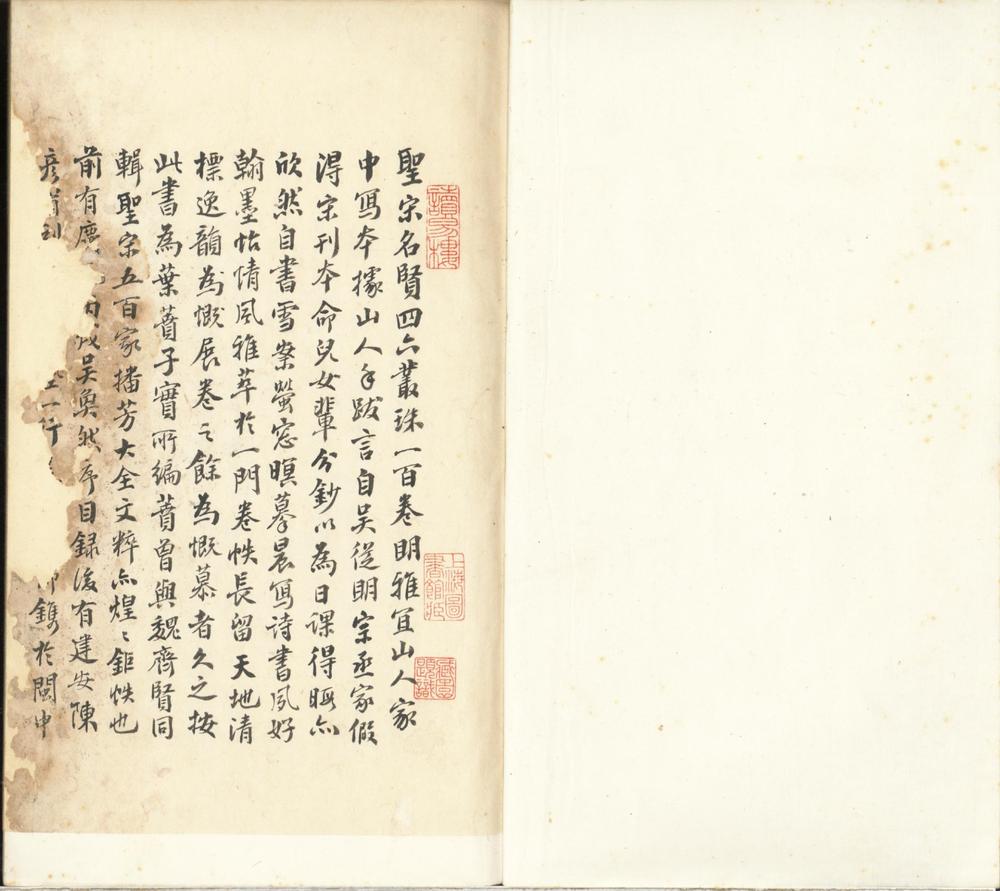 聖宋名賢四六叢珠一百卷明雅宜山人家
中寫本據山人手跋言自吳從明宗丞家假
得宋刊本命兒女輩分鈔以為日課得暇亦
欣然自書雪案螢窓暝摹晨寫詩書夙好
翰墨怡情風雅萃於一門卷帙長留天地清
標逸韻為慨展卷之餘為慨慕者久之按
此書為葉蕡子實所編蕡曾與魏齊賢同
輯聖宋五百家播芳大全文粹亦煌〻鉅帙也
前有慶吳奐然序目錄後有建安陳
彥甫刊一行鐫於閩中
讀易樓
上海圖書館藏